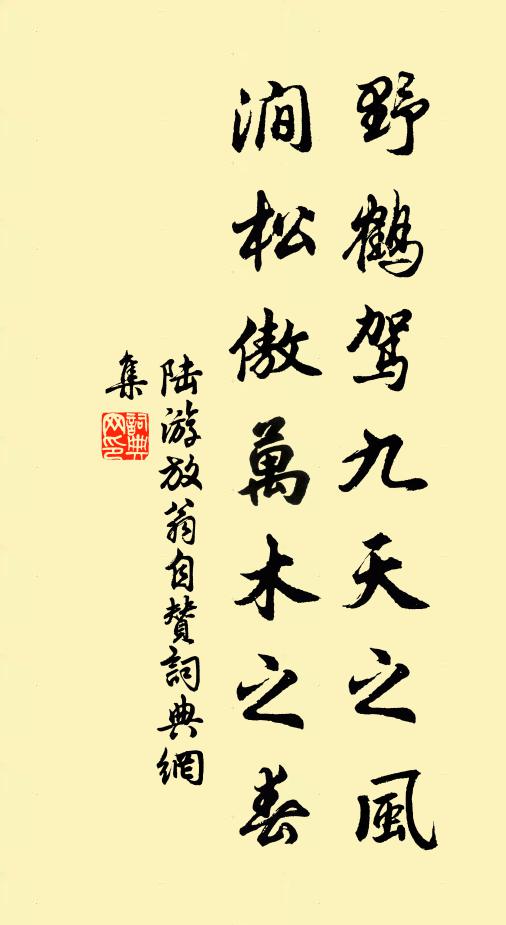 野鶴駕九天之風
澗松傲萬木之春
陆游放翁自赞詞典網
集
詞典网印